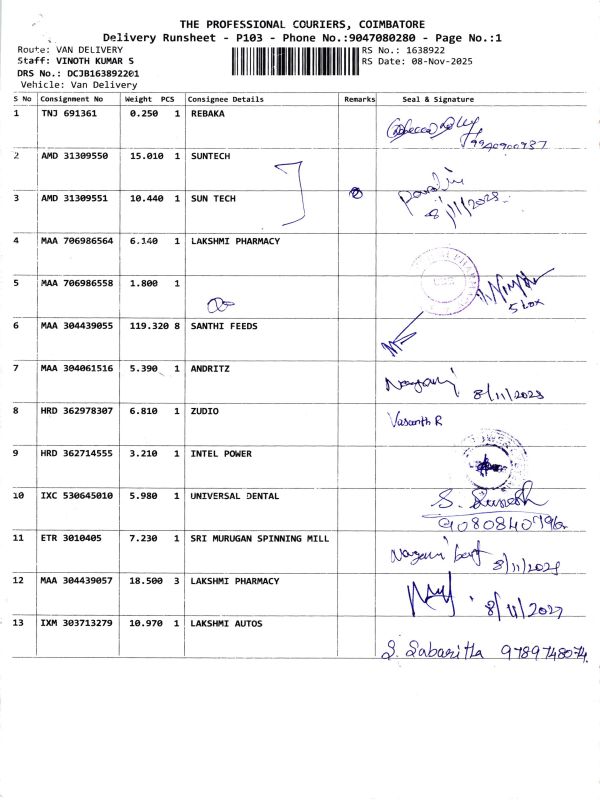 THE PROFESSIONAL COURIERS, COIMBATORE
Delivery Runsheet - P103 - Phone No.:9047080280 - Page No.:1
Route: VAN DELIVERY
RS No.: 1638922
Staff: VINOTH KUMAR S
RS Date: 08-Nov-2025
DRS No.: DCJB163892201
Vehicle: Van Delivery
S No Consignment No Weight PCS Consignee Details Remarks Seal & Signature
1 TNJ 691361 0.250 1 REBAKA
2 AMD 31309550 15.010 1 SUNTECH
3 AMD 31309551 10.440 1 SUN TECH
4 MAA 706986564 6.140 1 LAKSHMI PHARMACY
5 MAA 706986558 1.800 1
6 MAA 304439055 119.320 8 SANTHI FEEDS
7 MAA 304061516 5.390 1 ANDRITZ
8 HRD 362978307 6.810 1 ZUDIO Vasanth R
9 HRD 362714555 3.210 1 INTEL POWER
10 IXC 530645010 5.980 1 UNIVERSAL DENTAL
11 ETR 3010405 7.230 1 SRI MURUGAN SPINNING MILL
12 MAA 304439057 18.500 3 LAKSHMI PHARMACY
13 IXM 303713279 10.970 1 LAKSHMI AUTOS 9789748074